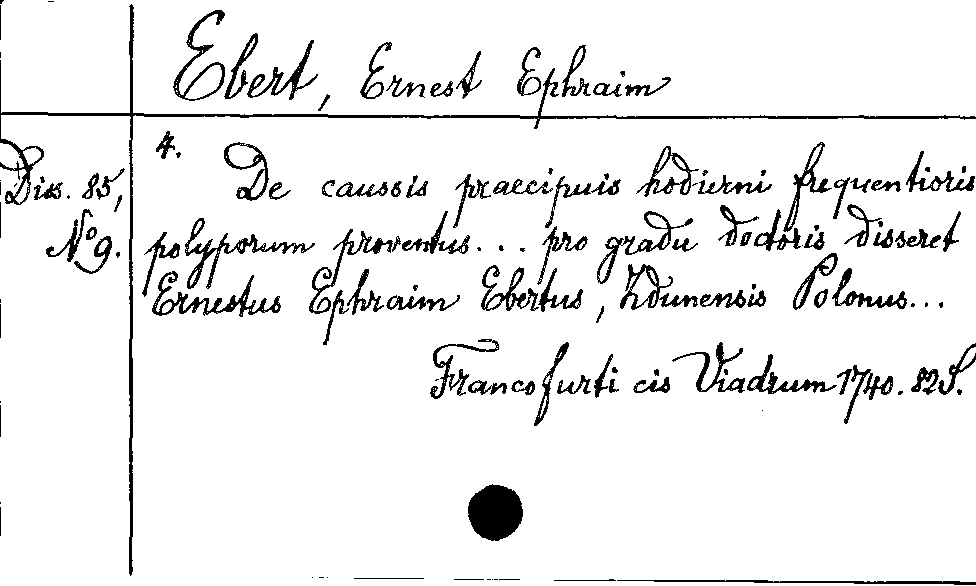 Ebert, Ernest Ephraim
4.
Diss. 85,
No 9.
De caussis praecipuis hodierni frequentioris
polyporum proventus... pro gradu doctoris disseret
Ernestus Ephraim Ebertus, Zdunensis Polonus...
Francofurti cis Viadrum 1740. 82 S.